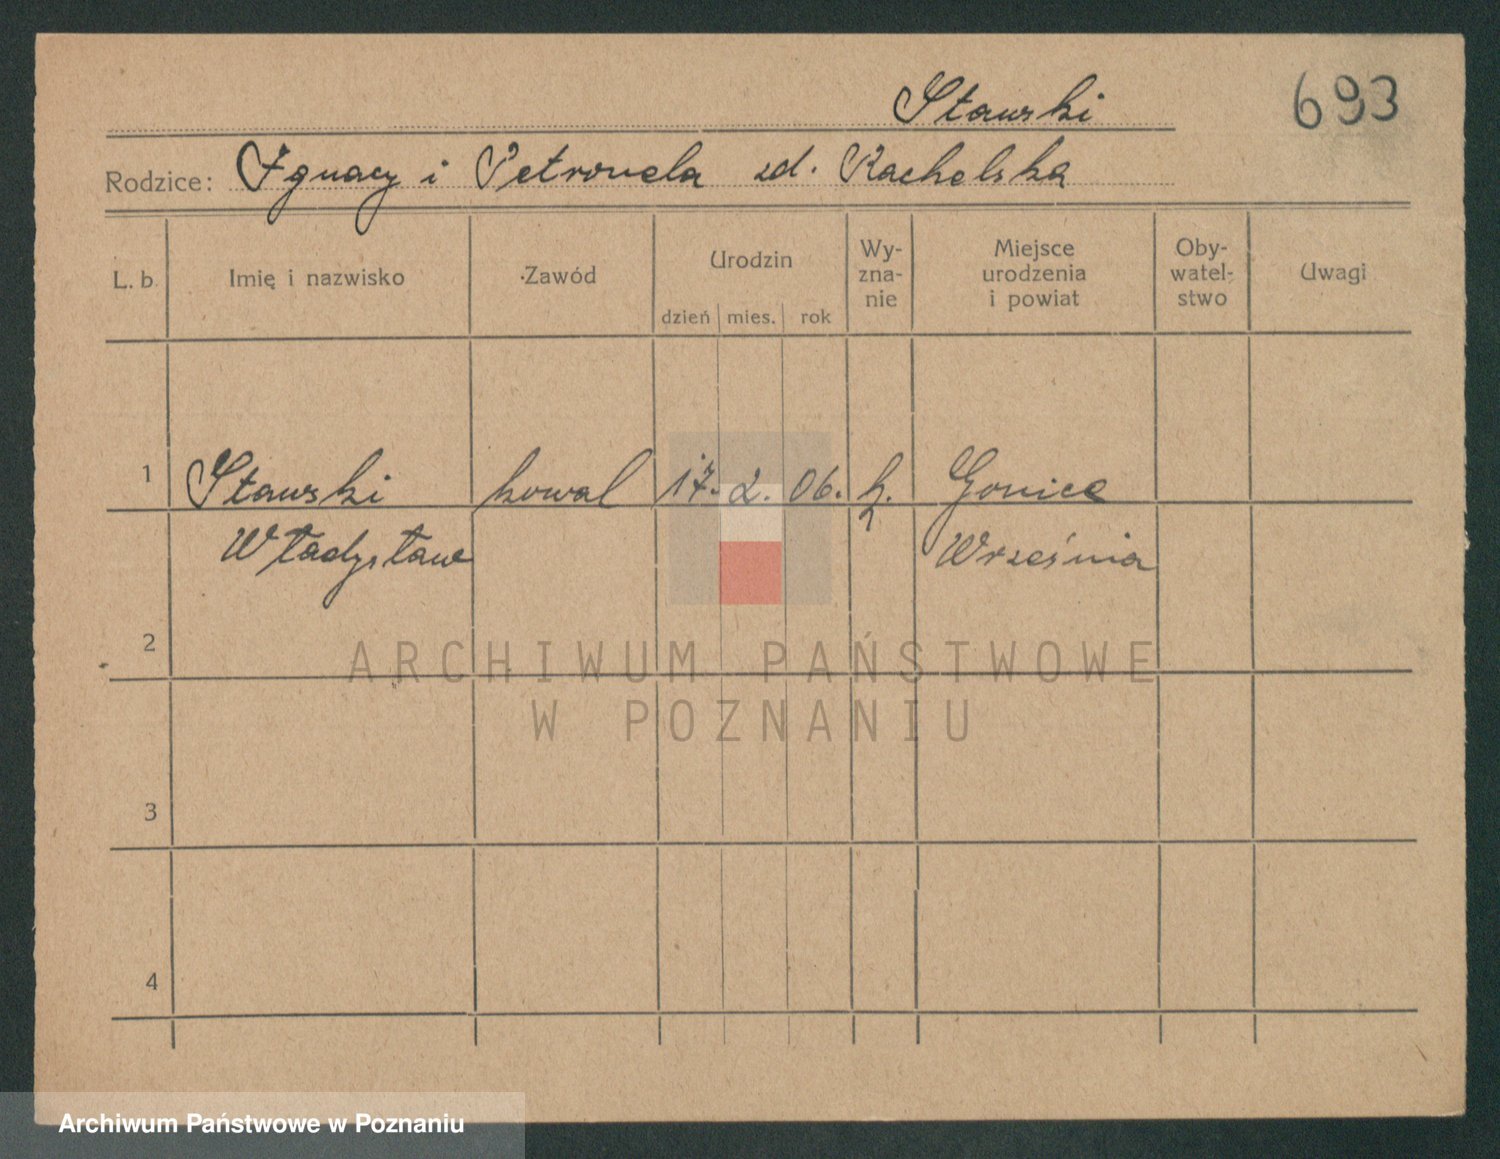 Stawski
693
Rodzice: Ignacy i Petronela zd. Rachelska
L. b.
Imię i nazwisko
Zawód
Urodzin
dzień mies. rok
Wy-
zna-
nie
Miejsce
urodzenia
i powiat
Oby-
watel-
stwo
Uwagi
1 Stawski kowal 17. 2. 06. k. Gonice
Władysław Września
2
3
4
ARCHIWUM PAŃSTWOWE
W POZNANIU
Archiwum Państwowe w Poznaniu